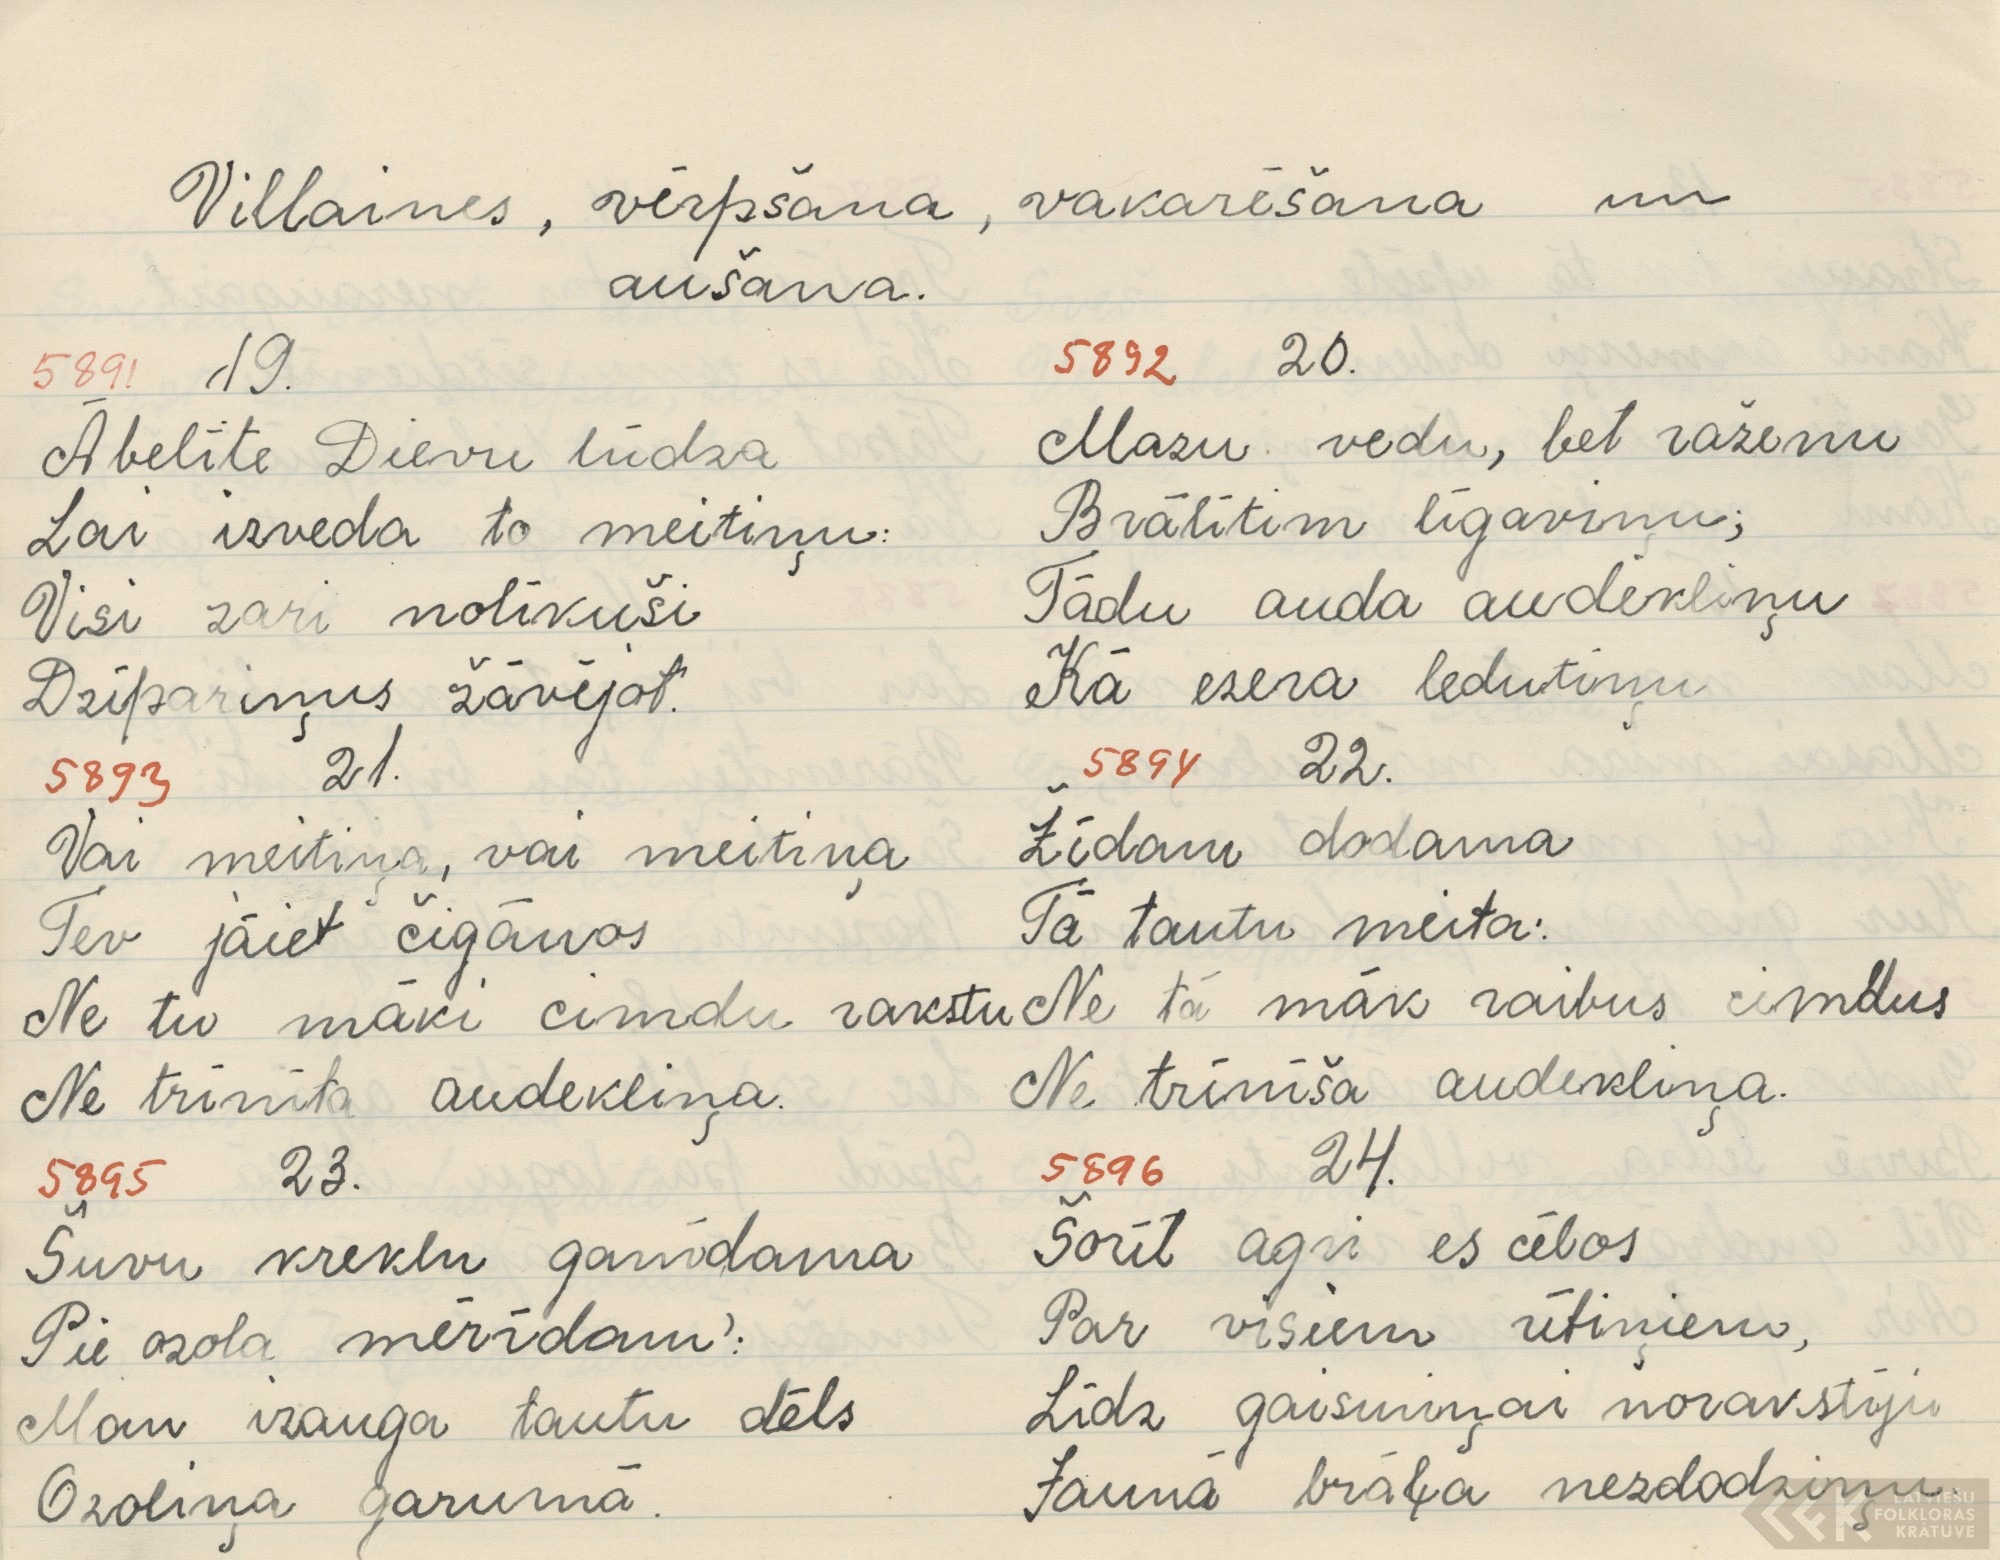 Villaines, vērpšana, vakarēšana un
aušana.
5891 19.
Ābelīte Dievu lūdza
Lai izveda to meitiņu:
Visi zari nolīkuši
Dzīpariņus žāvējot.
5892 20.
Mazu vedu, bet raženu
Brālītim līgaviņu;
Tādu auda audekliņu
Kā ezera ledutiņu
5893 21.
Vai meitiņa, vai meitiņa
Tev jāiet čigānos
Ne tu māki cimdu rakstu
Ne trīnīta audekliņa.
5894 22.
Žīdam dodama
Tā tautu meita:
Ne tā māk raibus cimdus
Ne trīnīša audekliņa.
5895 23.
Šuvu kreklu ganīdama
Pie ozola mērīdam':
Man izauga tautu dēls
Ozoliņa garumā.
5896 24.
Šorīt agri es cēlos
Par visiem rītiņiem,
Līdz gaisminiņai norakstīju
Jaunā brāļa nezdodziņu.
LATVIEŠU
FOLKLORAS
KRĀTUVE